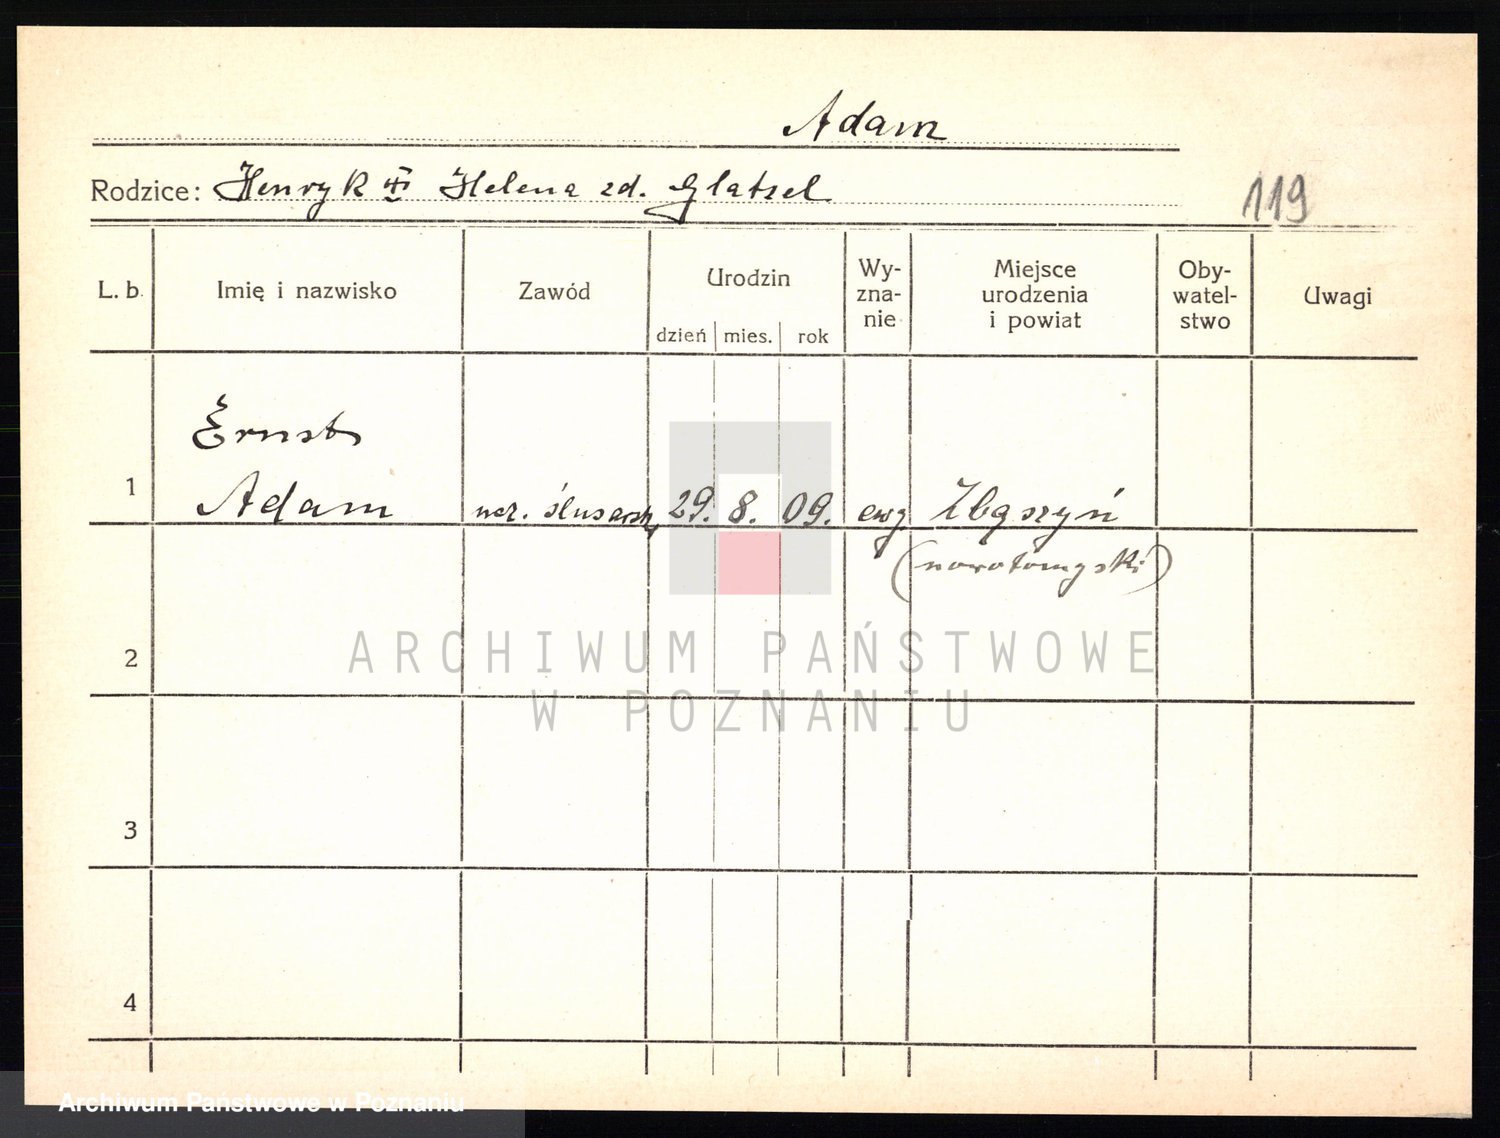 Adam
Rodzice: Henryk i Helena zd. Glatzel
119
L. b. Imię i nazwisko Zawód Urodzin Wy-zna-nie Miejsce urodzenia i powiat Oby-watel-stwo Uwagi
dzień mies. rok
Ernst
1 Adam ucz. ślusarski 29. 8. 09. ewg. Zbąszyń
(nowotomyski)
2
3
4
ARCHIWUM PAŃSTWOWE
W POZNANIU
Archiwum Państwowe w Poznaniu